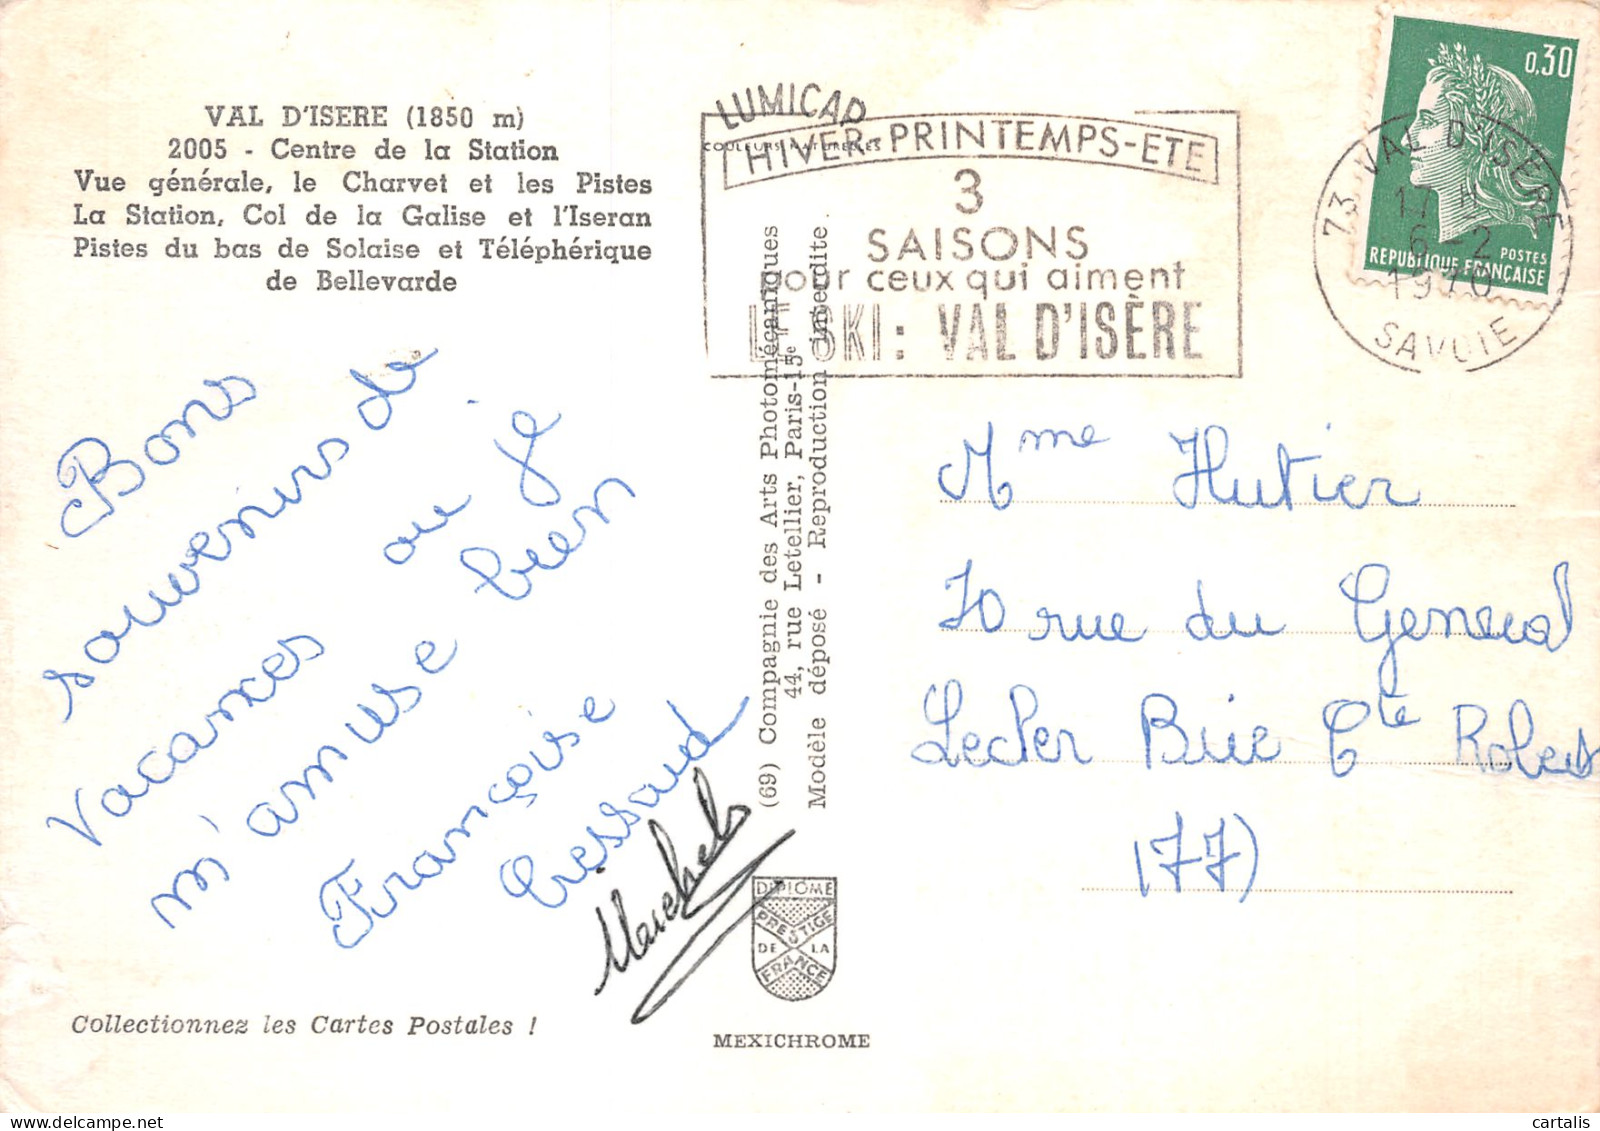 VAL D'ISERE (1850 m)
2005 - Centre de la Station
Vue générale, le Charvet et les Pistes
La Station, Col de la Galise et l'Iseran
Pistes du bas de Solaise et Téléphérique
de Bellevarde
Bons
souvenirs de
vacances ou je
m'amuse bien
Françoise
Cressaud
Collectionnez les Cartes Postales !
LUMICAP
COULEURS NATURELLES
HIVER-PRINTEMPS-ETE
3
SAISONS
pour ceux qui aiment
LE SKI : VAL D'ISÈRE
(69) Compagnie des Arts Photomécaniques
44, rue Letellier, Paris-15e
Modèle déposé - Reproduction interdite
DIPLOME
PRESTIGE
DE LA
FRANCE
MEXICHROME
0,30
POSTES
REPUBLIQUE FRANÇAISE
73 VAL D'ISÈRE
17 H
6-2
1970
SAVOIE
Mme Hutier
70 rue du General
Lecler Brie Cte Robert
(77)
cartalis
delcampe.net